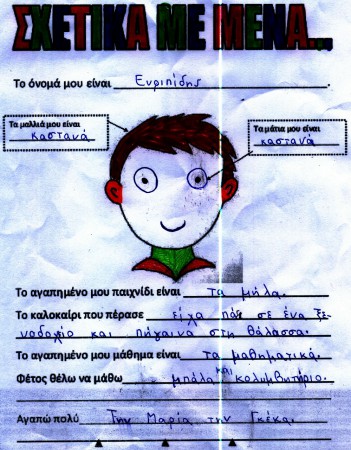 ΣΧΕΤΙΚΑ ΜΕ ΜΕΝΑ...
Το όνομά μου είναι Ευριπίδης.
Τα μαλλιά μου είναι
καστανά
Τα μάτια μου είναι
καστανά
Το αγαπημένο μου παιχνίδι είναι τα μήλα.
Το καλοκαίρι που πέρασε είχα πάι σε ένα ξε-
νοδοχίο και πήγαινα στη θάλασσα.
Το αγαπημένο μου μάθημα είναι τα μαθηματικά.
Φέτος θέλω να μάθω μπάλα και κολυμβιτήριο.
Αγαπώ πολύ Την Μαρία την Γκέκα.